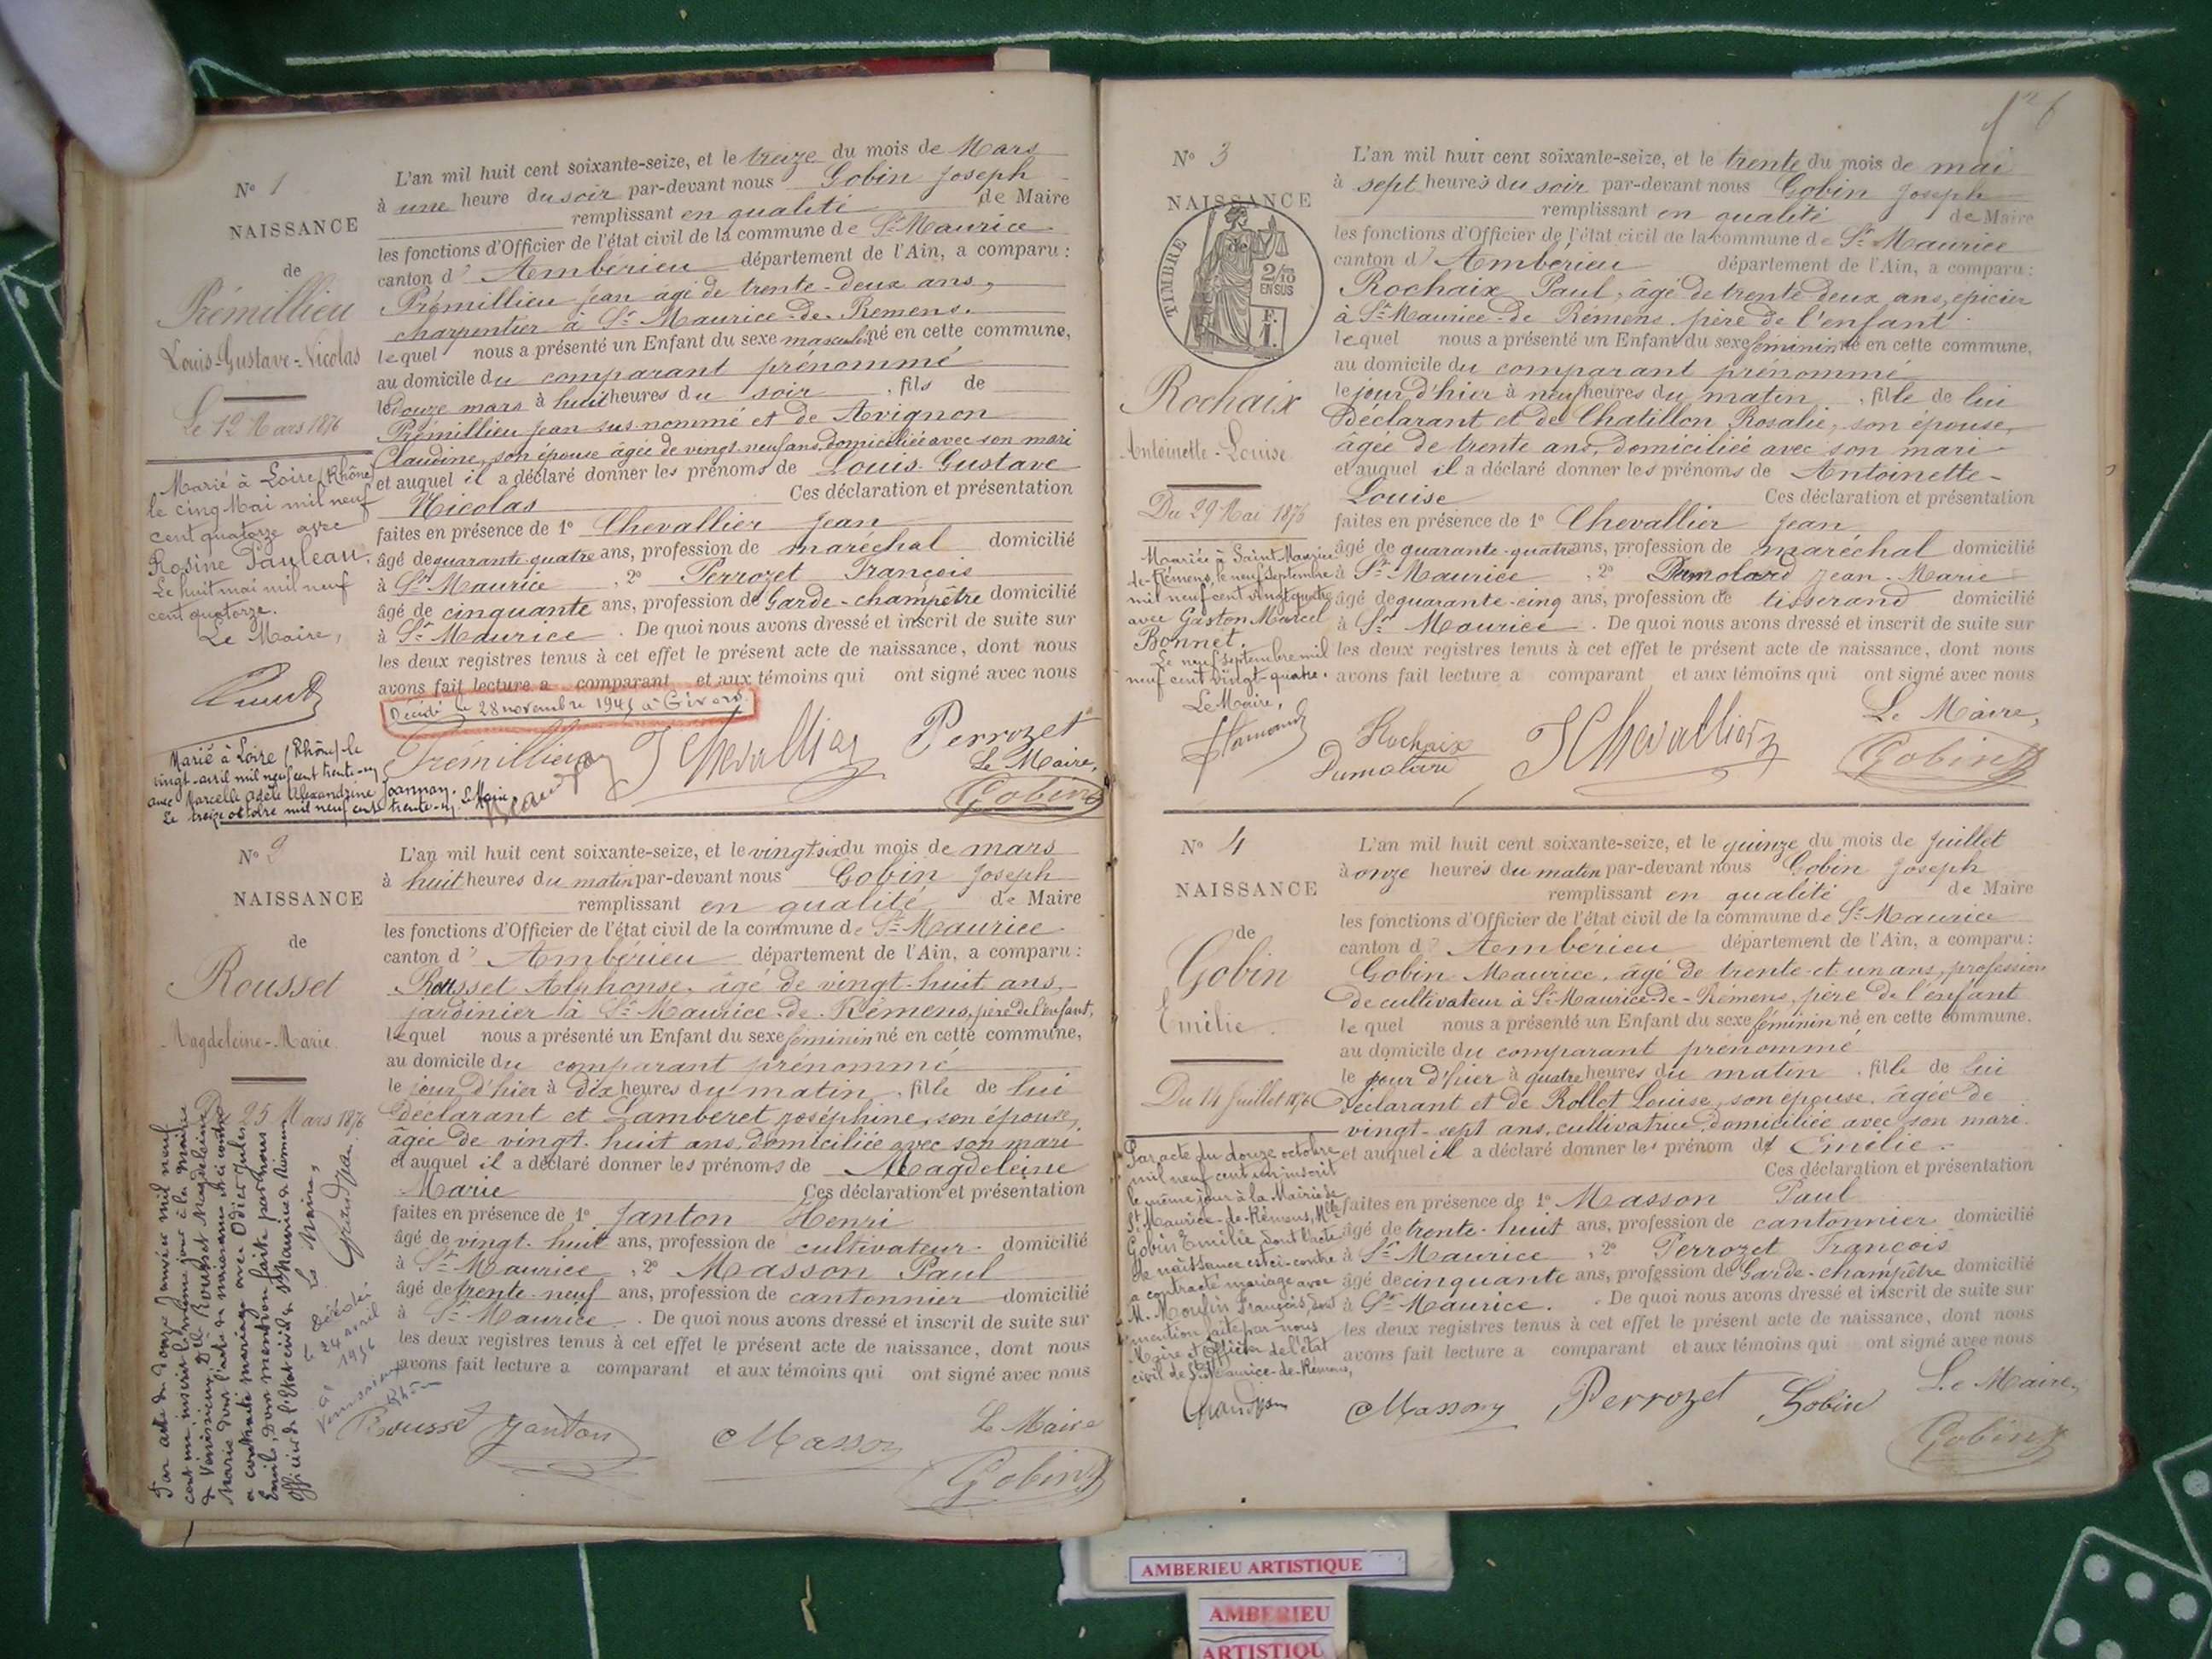 N° 1
NAISSANCE
de
Prémillieu
Louis-Gustave-Nicolas
Le 12 Mars 1876
Marié à Loire (Rhône)
le cinq Mai mil neuf
cent quatorze avec
Rosine Pauleau.
Le huit mai mil neuf
cent quatorze.
Le Maire,
Marié à Loire (Rhône) le
vingt-avril mil neuf cent trente-un
avec Marcelle Adèle Alexandrine Joannon.
Le treize octobre mil neuf cent trente-un. Le Maire
L'an mil huit cent soixante-seize, et le treize du mois de Mars
à une heure du soir par-devant nous Gobin Joseph
remplissant en qualité de Maire
les fonctions d'Officier de l'état civil de la commune de St Maurice
canton d' Ambérieu département de l'Ain, a comparu :
Prémillieu Jean âgé de trente-deux ans,
charpentier à St Maurice-de-Remens.
lequel nous a présenté un Enfant du sexe masculin né en cette commune,
au domicile du comparant prénommé
le douze mars à huit heures du soir , fils de
Prémillieu Jean sus-nommé et de Avignon
Claudine, son épouse âgée de vingt-neuf ans, domiciliée avec son mari
et auquel il a déclaré donner les prénoms de Louis-Gustave
Nicolas Ces déclaration et présentation
faites en présence de 1° Chevallier Jean
âgé de quarante-quatre ans, profession de maréchal domicilié
à St Maurice , 2° Perrozet François
âgé de cinquante ans, profession de Garde-champêtre domicilié
à St Maurice . De quoi nous avons dressé et inscrit de suite sur
les deux registres tenus à cet effet le présent acte de naissance, dont nous
avons fait lecture a comparant et aux témoins qui ont signé avec nous
Décédé le 28 novembre 1945 à Givors.
Prémillieu J Chevallier Perrozet
Le Maire,
Gobin
N° 2
NAISSANCE
de
Rousset
Magdeleine-Marie
Du 25 Mars 1876
Par acte du douze Janvier mil neuf
cent un, inscrit le même jour à la mairie
de Venissieux, Dlle Rousset Magdeleine
Marie dont l'acte de naissance est ci-contre
a contracté mariage avec Odier Jules
Emile, dont mention faite par nous
officier de l'Etat civil de St Maurice de Rémens
Le Maire,
Grandjean
Décédée
le 24 avril
1956
à
Venissieux
Rhône
L'an mil huit cent soixante-seize, et le vingt six du mois de mars
à huit heures du matin par-devant nous Gobin Joseph
remplissant en qualité de Maire
les fonctions d'Officier de l'état civil de la commune de St Maurice
canton d' Ambérieu département de l'Ain, a comparu :
Rousset Alphonse, âgé de vingt-huit ans,
jardinier à St Maurice-de-Rémens, père de l'enfant,
lequel nous a présenté un Enfant du sexe féminin né en cette commune,
au domicile du comparant prénommé
le jour d'hier à dix heures du matin , fille de lui
déclarant et Lamberet Joséphine, son épouse,
âgée de vingt-huit ans, domiciliée avec son mari
et auquel il a déclaré donner les prénoms de Magdeleine
Marie Ces déclaration et présentation
faites en présence de 1° Janton Henri
âgé de vingt-huit ans, profession de cultivateur domicilié
à St Maurice , 2° Masson Paul
âgé de trente-neuf ans, profession de cantonnier domicilié
à St Maurice . De quoi nous avons dressé et inscrit de suite sur
les deux registres tenus à cet effet le présent acte de naissance, dont nous
avons fait lecture a comparant et aux témoins qui ont signé avec nous
Rousset Janton Masson
Le Maire
Gobin
N° 3
NAISSANCE
de
TIMBRE
2/10
EN SUS
F.
1.
Rochaix
Antoinette-Louise
Du 29 Mai 1876
Mariée à Saint-Maurice
de-Rémens, le neuf septembre
mil neuf cent vingt quatre
avec Gaston Marcel
Bonnet.
Le neuf septembre mil
neuf cent vingt-quatre.
Le Maire,
L'an mil huit cent soixante-seize, et le trente du mois de mai
à sept heures du soir par-devant nous Gobin Joseph
remplissant en qualité de Maire
les fonctions d'Officier de l'état civil de la commune de St Maurice
canton d' Ambérieu département de l'Ain, a comparu :
Rochaix Paul, âgé de trente deux ans, épicier
à St Maurice-de Remens, père de l'enfant
lequel nous a présenté un Enfant du sexe féminin né en cette commune,
au domicile du comparant prénommé
le jour d'hier à neuf heures du matin , fille de lui
déclarant et de Chatillon Rosalie, son épouse,
âgée de trente ans, domiciliée avec son mari
et auquel il a déclaré donner les prénoms de Antoinette-
Louise Ces déclaration et présentation
faites en présence de 1° Chevallier Jean
âgé de quarante-quatre ans, profession de maréchal domicilié
à St Maurice , 2° Dumolard Jean-Marie
âgé de quarante-cinq ans, profession de tisserand domicilié
à St Maurice . De quoi nous avons dressé et inscrit de suite sur
les deux registres tenus à cet effet le présent acte de naissance, dont nous
avons fait lecture a comparant et aux témoins qui ont signé avec nous
Le Maire,
Rochaix J Chevallier Gobin
Dumolard
N° 4
NAISSANCE
de
Gobin
Emélie.
Du 14 Juillet 1876
Par acte du douze octobre
mil neuf cent un inscrit
le même jour à la Mairie de
St Maurice-de-Rémens, Mlle
Gobin Emélie dont l'acte
de naissance est ci-contre
a contracté mariage avec
M. Moulin François, dont
mention faite par nous
Maire et Officier de l'état
civil de St Maurice-de-Rémens,
Grandjean
L'an mil huit cent soixante-seize, et le quinze du mois de Juillet
à onze heures du matin par-devant nous Gobin Joseph
remplissant en qualité de Maire
les fonctions d'Officier de l'état civil de la commune de St Maurice
canton d' Ambérieu département de l'Ain, a comparu :
Gobin Maurice, âgé de trente-et-un ans, profession
de cultivateur à St Maurice-de-Rémens, père de l'enfant
lequel nous a présenté un Enfant du sexe féminin né en cette commune,
au domicile du comparant prénommé
le jour d'hier à quatre heures du matin , fille de lui
déclarant et de Rollet Louise, son épouse, âgée de
vingt-sept ans, cultivatrice, domiciliée avec son mari.
et auquel il a déclaré donner le prénom d' Emélie.
Ces déclaration et présentation
faites en présence de 1° Masson Paul
âgé de trente-huit ans, profession de cantonnier domicilié
à St Maurice , 2° Perrozet François
âgé de cinquante ans, profession de Garde-champêtre domicilié
à St Maurice. . De quoi nous avons dressé et inscrit de suite sur
les deux registres tenus à cet effet le présent acte de naissance, dont nous
avons fait lecture a comparant et aux témoins qui ont signé avec nous
Le Maire,
Masson Perrozet Gobin
Gobin
AMBERIEU ARTISTIQUE
AMBERIEU
ARTISTIQU